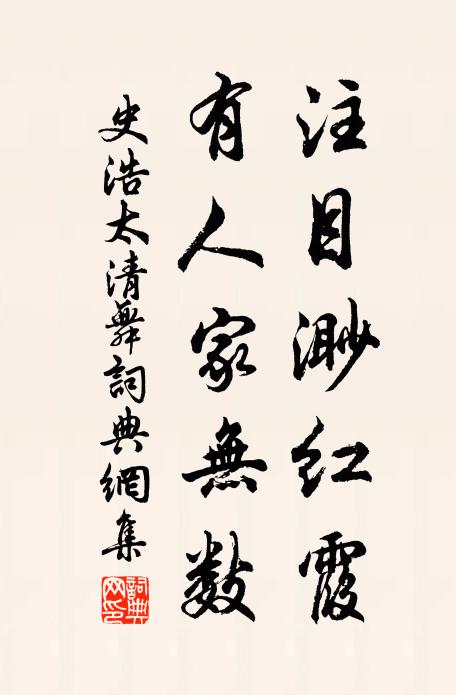 注目渺紅霞
有人家無數
史浩太清舞詞典網集
詞典網印